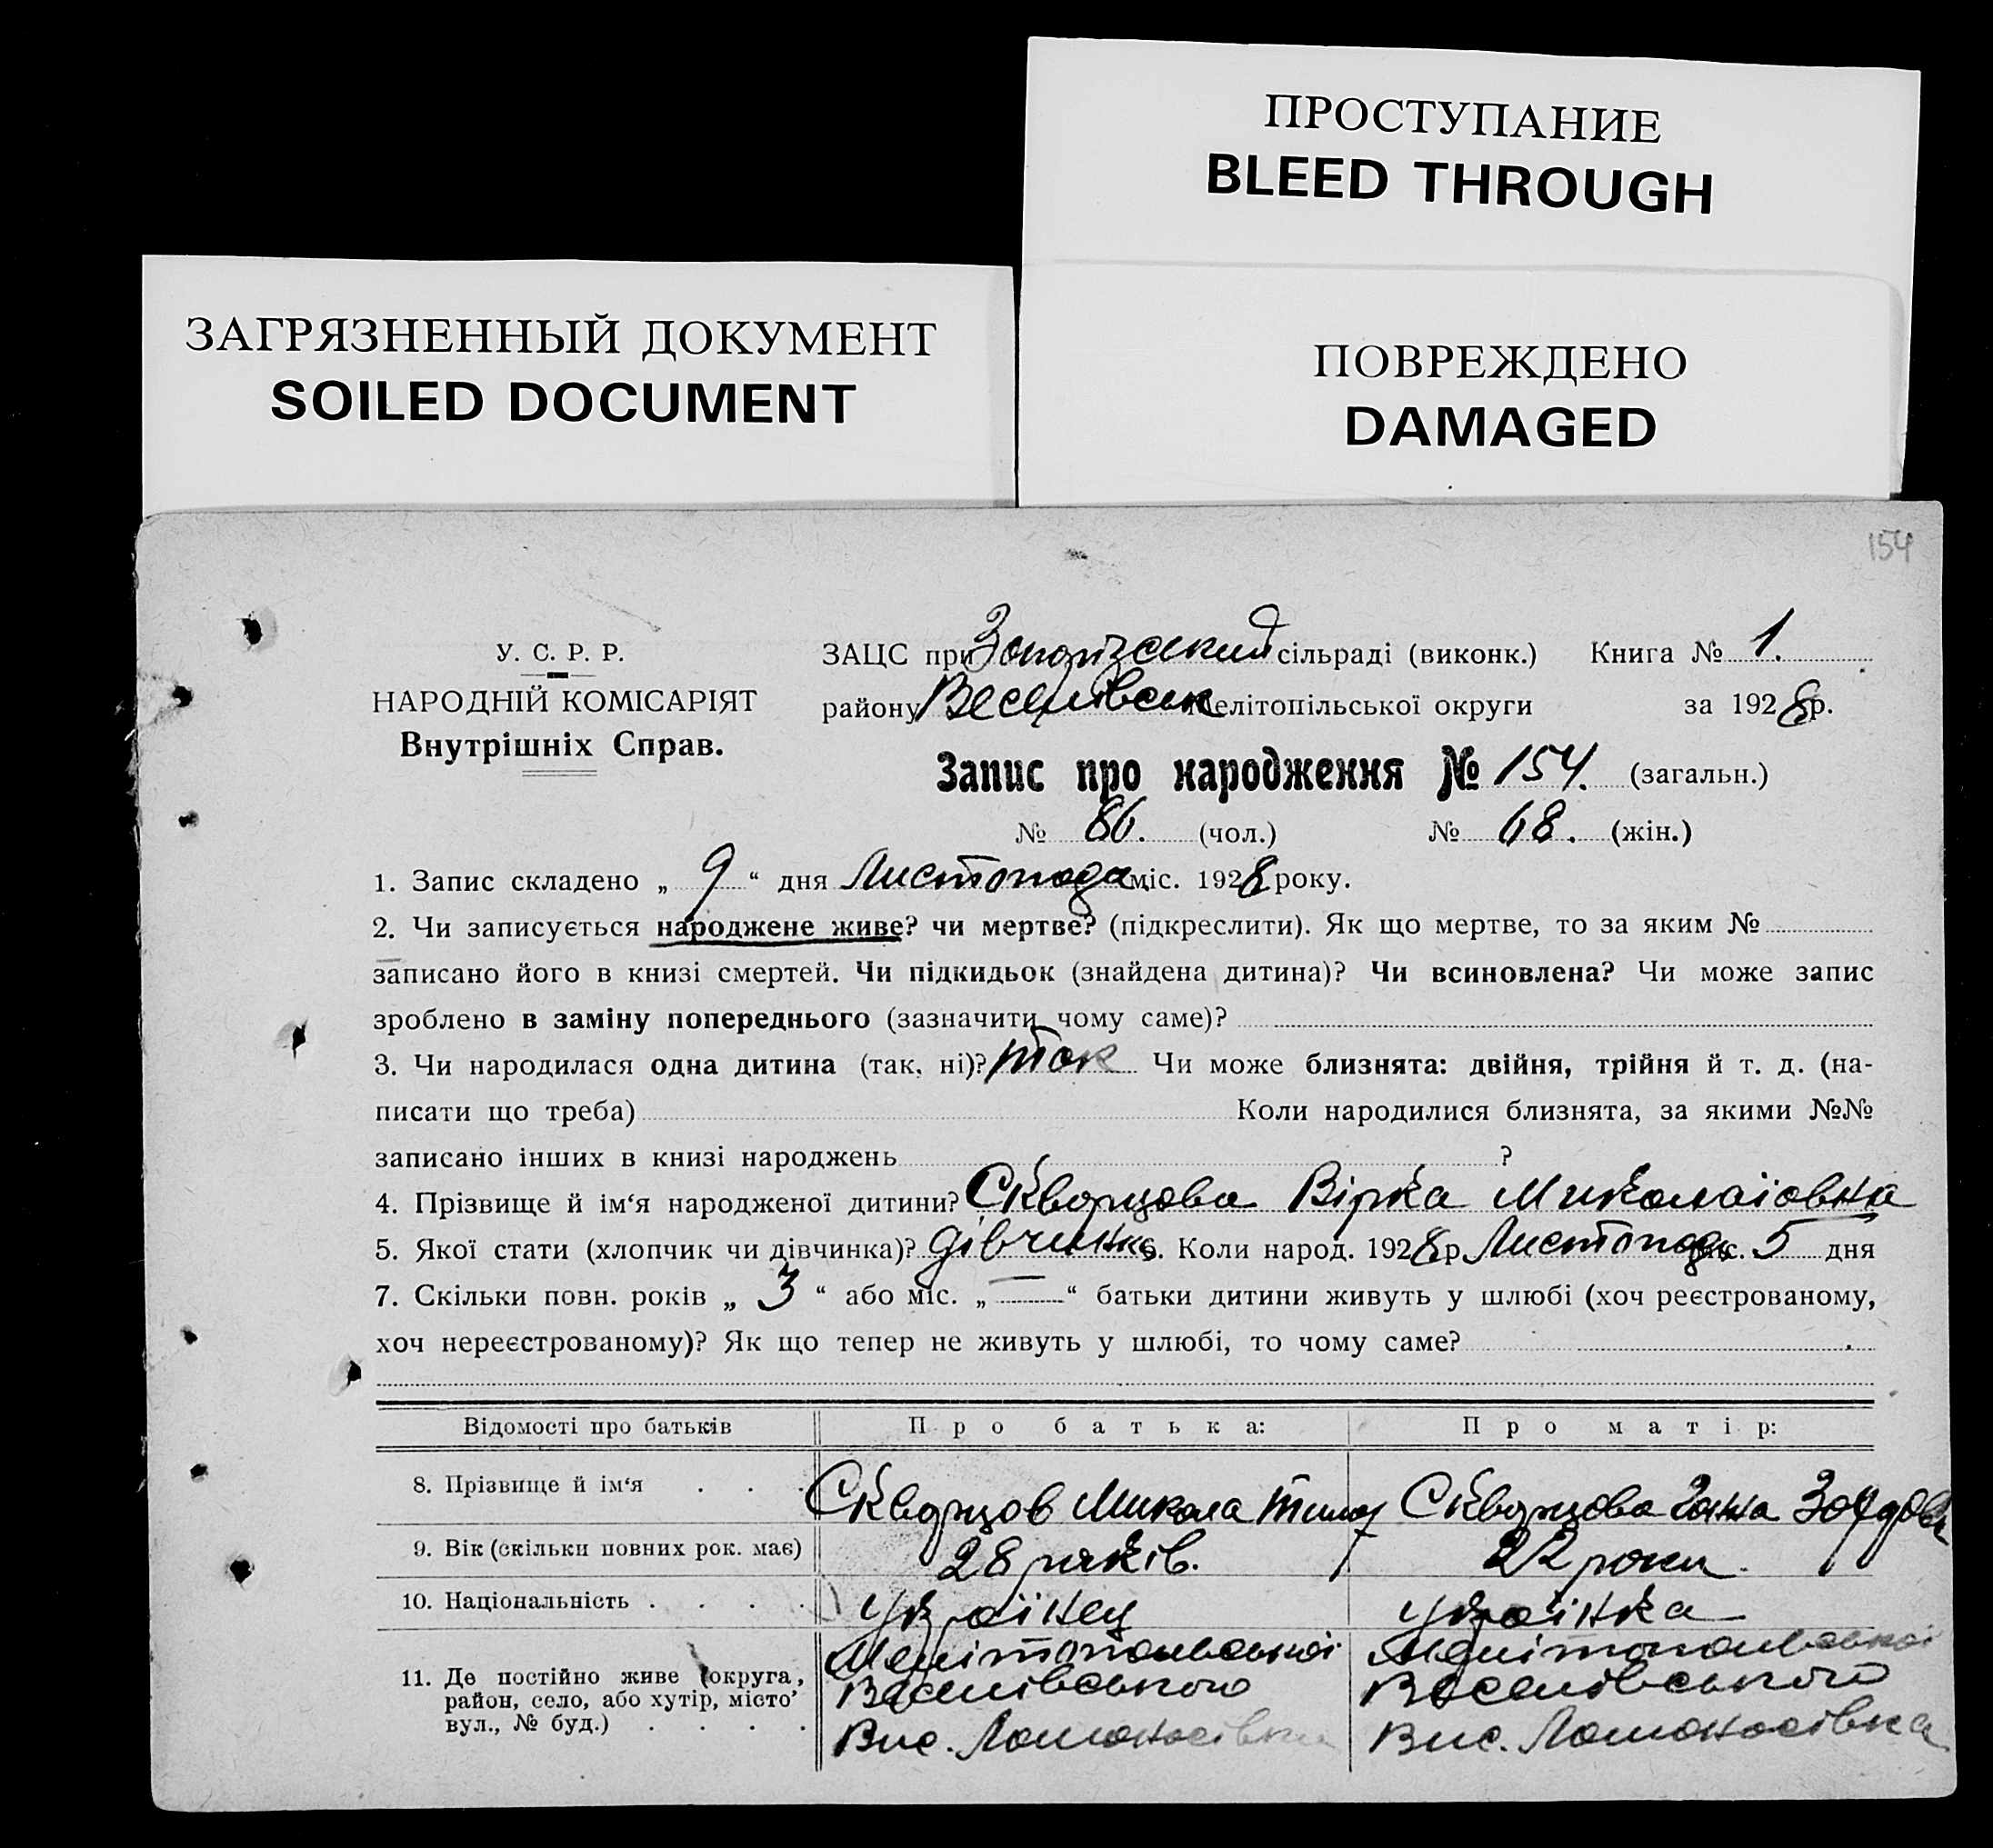 ПРОСТУПАНИЕ
BLEED THROUGH
ЗАГРЯЗНЕННЫЙ ДОКУМЕНТ
SOILED DOCUMENT
ПОВРЕЖДЕНО
DAMAGED
154
У. С. Р. Р.
НАРОДНІЙ КОМІСАРІЯТ
Внутрішніх Справ.
ЗАЦС при Запорізский сільраді (виконк.) Книга № 1.
району Веселівськ Мелітопільської округи за 1928 р.
Запис про народження № 154. (загальн.)
№ 86. (чол.) № 68. (жін.)
1. Запис складено „ 9 “ дня Листопада міс. 1928 року.
2. Чи записується народжене живе? чи мертве? (підкреслити). Як що мертве, то за яким №
записано його в книзі смертей. Чи підкидьок (знайдена дитина)? Чи всиновлена? Чи може запис
зроблено в заміну попереднього (зазначити чому саме)?
3. Чи народилася одна дитина (так, ні)? так Чи може близнята: двійня, трійня й т. д. (на-
писати що треба) Коли народилися близнята, за якими №№
записано інших в книзі народжень ?
4. Прізвище й ім‘я народженої дитини? Скворцова Вірка Миколаїовна
5. Якої стати (хлопчик чи дівчинка)? дівчинка 6. Коли народ. 1928 р. Листопада міс. 5 дня
7. Скільки повн. років „ 3 “ або міс. „ — “ батьки дитини живуть у шлюбі (хоч реєстрованому,
хоч нереєстрованому)? Як що тепер не живуть у шлюбі, то чому саме?
Відомості про батьків Про батька: Про матір:
8. Прізвище й ім‘я Скворцов Микола Тим Скворцова Ганна
9. Вік (скільки повних рок. має) 28 років. 22 роки.
10. Національність Українец Українка
11. Де постійно живе (округа, район, село, або хутір, місто’ вул., № буд.)
Мелітопольської Мелітопольської
Веселівського Веселівського
Вис. Ломоносівка Вис. Ломоносівка